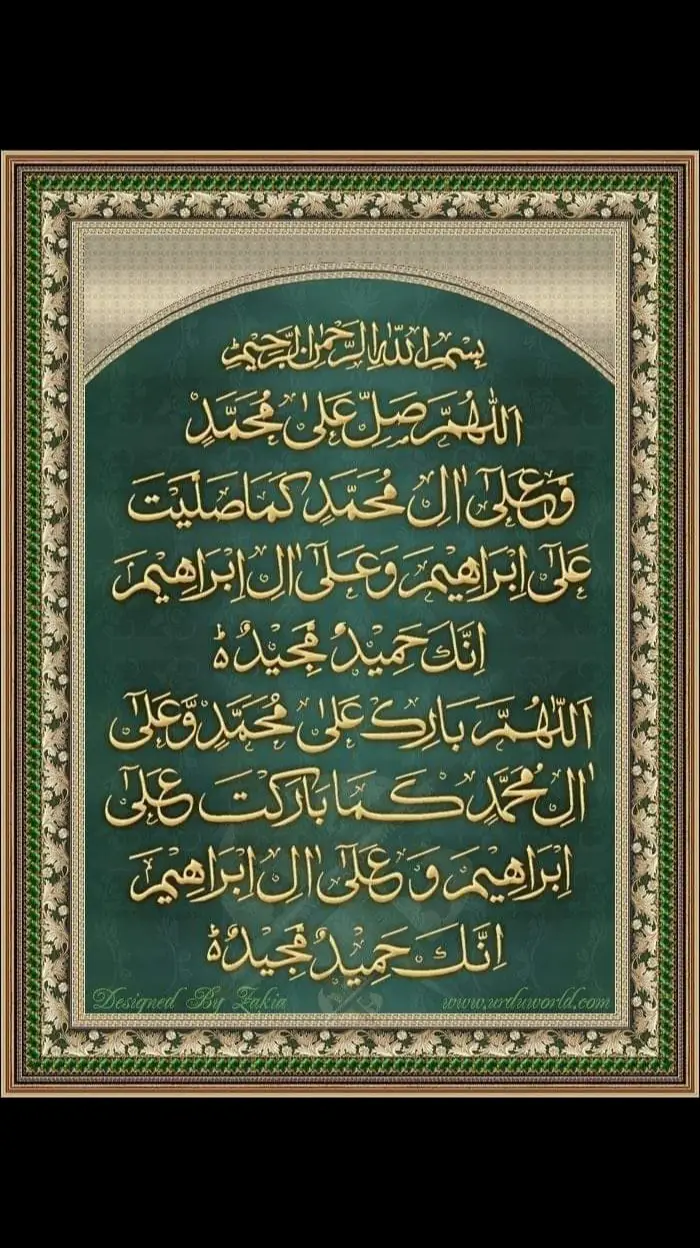 بِسْمِ اللهِ الرَّحْمٰنِ الرَّحِيْمِ
اَللّٰهُمَّ صَلِّ عَلٰى مُحَمَّدٍ
وَّعَلٰٓى اٰلِ مُحَمَّدٍ كَمَا صَلَّيْتَ
عَلٰٓى اِبْرَاهِيْمَ وَعَلٰٓى اٰلِ اِبْرَاهِيْمَ
اِنَّكَ حَمِيْدٌ مَّجِيْدٌ ؕ
اَللّٰهُمَّ بَارِكْ عَلٰى مُحَمَّدٍ وَّعَلٰٓى
اٰلِ مُحَمَّدٍ كَمَا بَارَكْتَ عَلٰٓى
اِبْرَاهِيْمَ وَ عَلٰٓى اٰلِ اِبْرَاهِيْمَ
اِنَّكَ حَمِيْدٌ مَّجِيْدٌ ؕ
Designed By Zakia www.urduworld.com